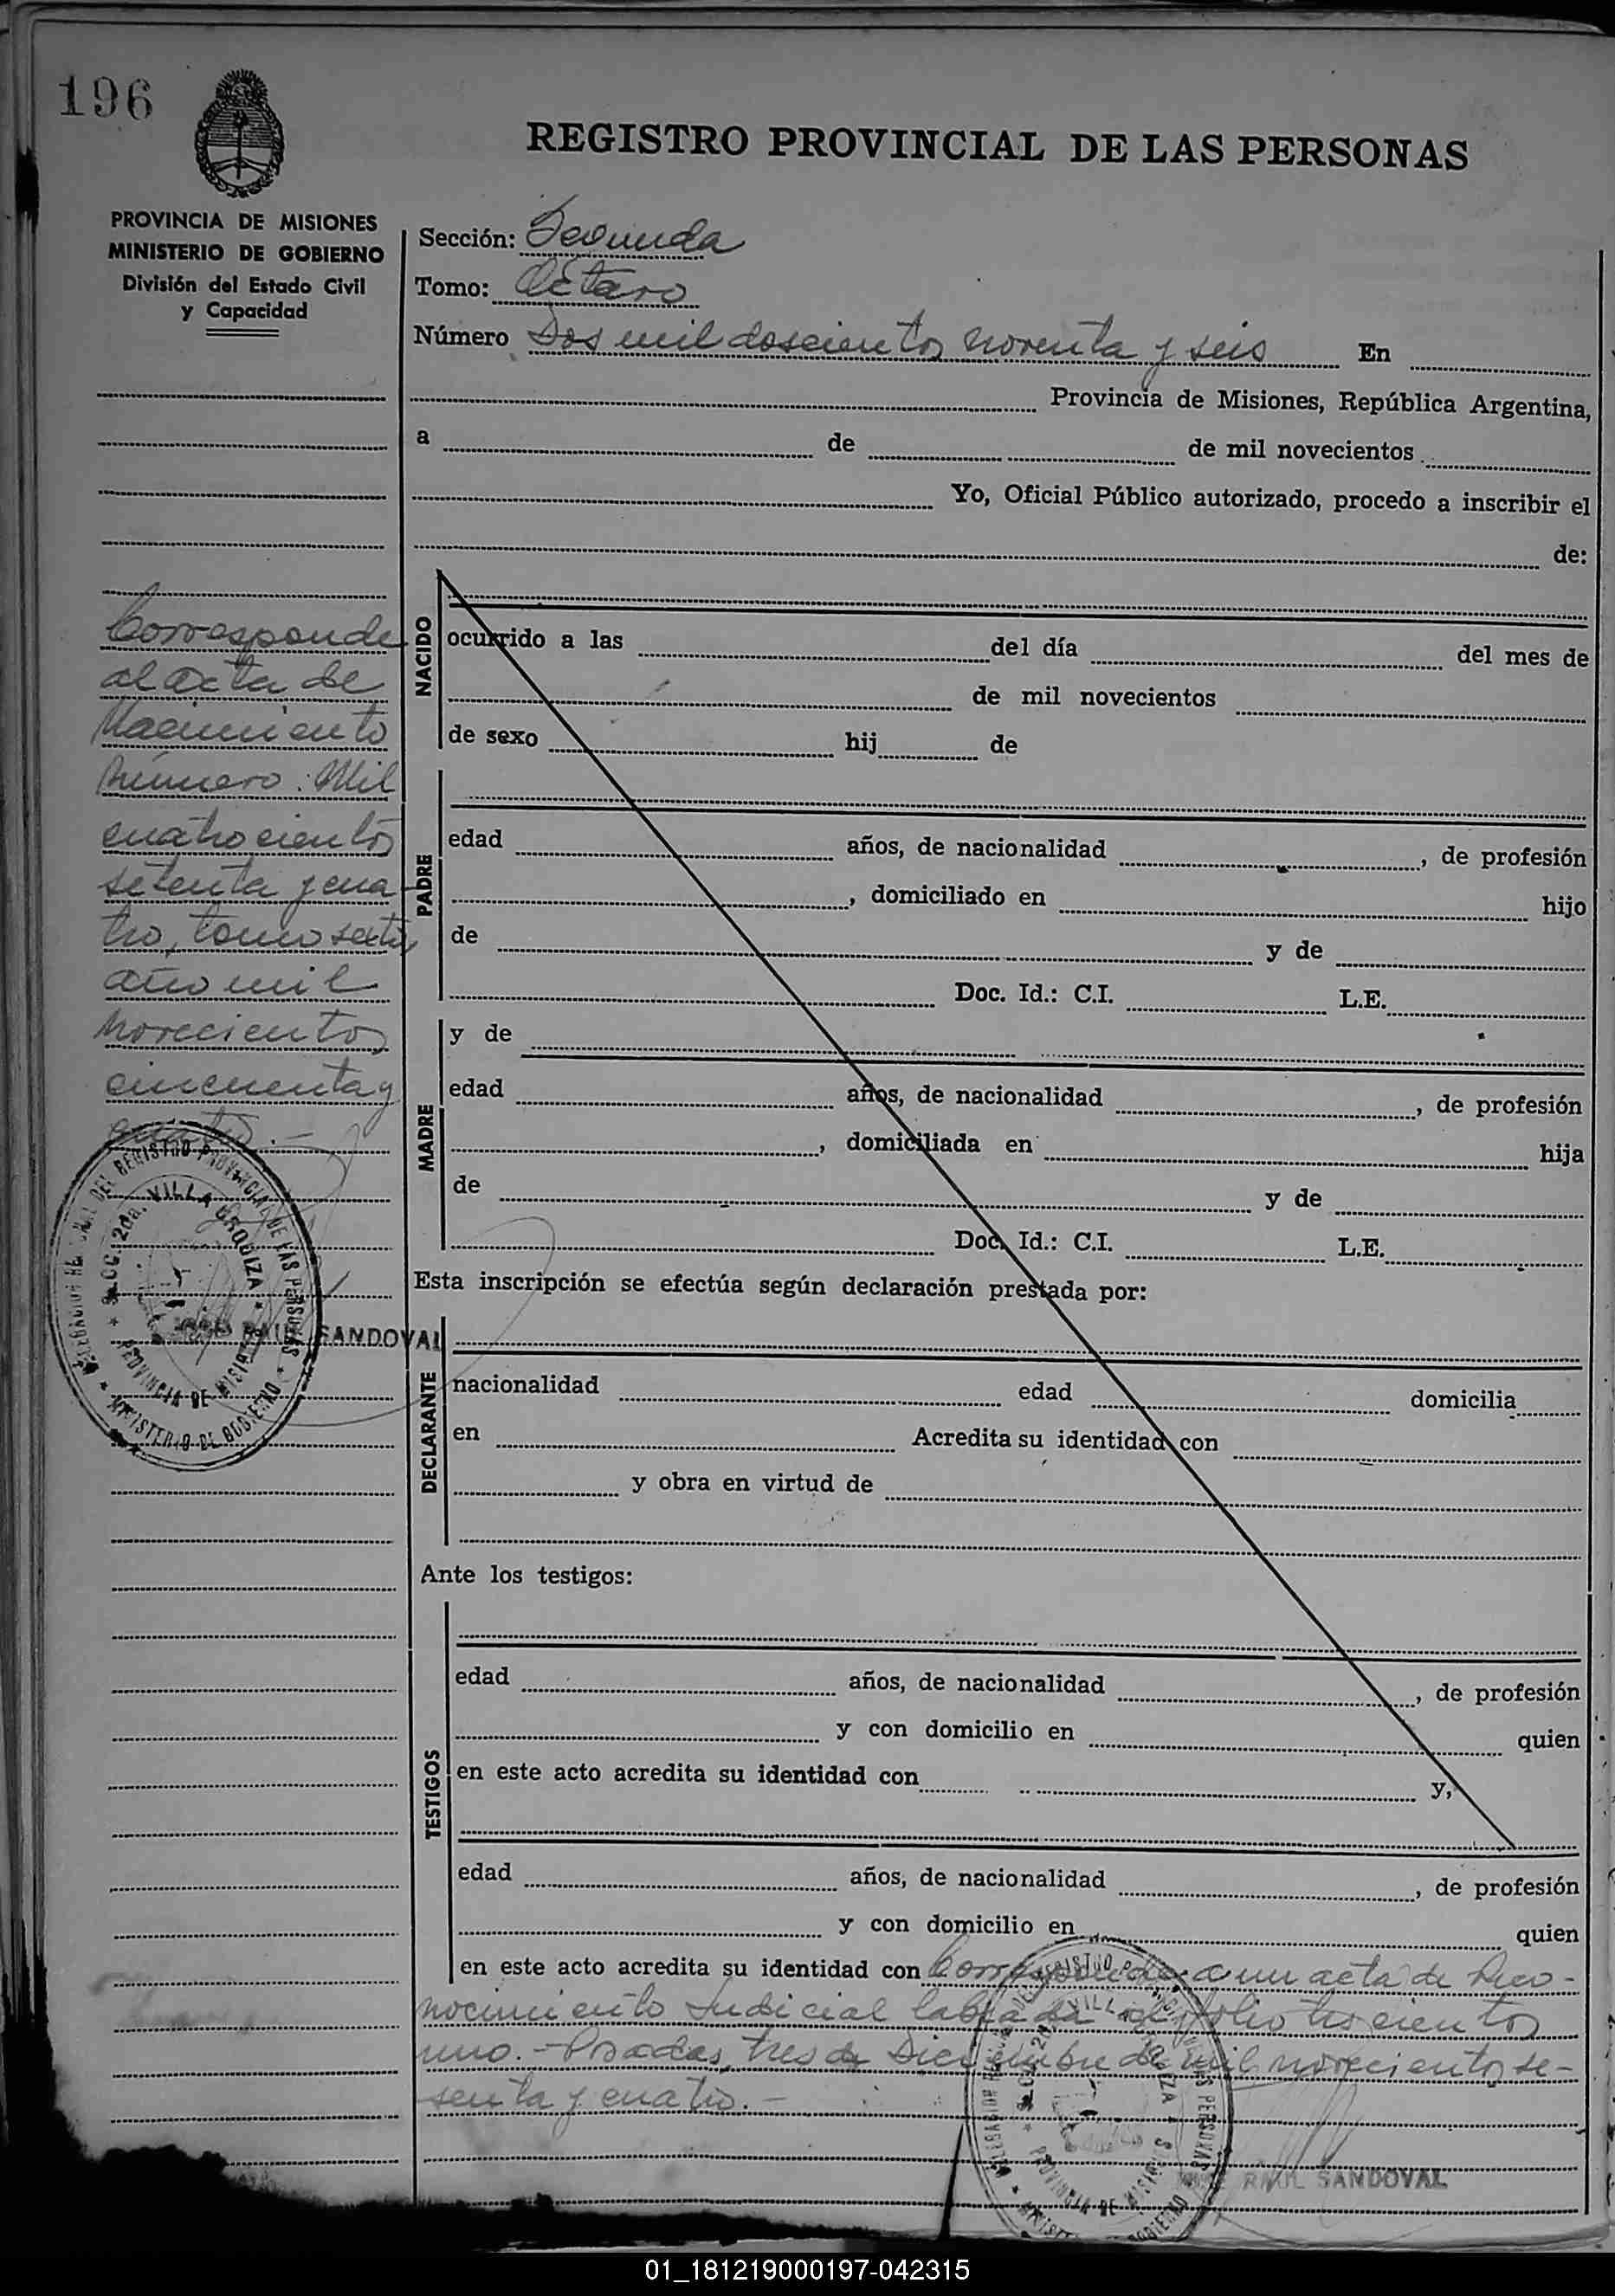 196
REGISTRO PROVINCIAL DE LAS PERSONAS
PROVINCIA DE MISIONES
MINISTERIO DE GOBIERNO
División del Estado Civil
y Capacidad
Sección: Segunda
Tomo: Octavo
Número Dos mil doscientos noventa y seis En
Provincia de Misiones, República Argentina,
a de de mil novecientos
Yo, Oficial Público autorizado, procedo a inscribir el
de:
Corresponde
al acta de
Nacimiento
Número: Mil
cuatrocientos
setenta y cua-
tro, tomo sexto,
año mil
novecientos
cincuenta y
cuatro.-
DEL REGISTRO PROVINCIAL DE LAS PERSONAS
SECC. 2da. VILLA URQUIZA
PROVINCIA DE MISIONES
MINISTERIO DE GOBIERNO
RAUL SANDOVAL
NACIDO
ocurrido a las del día del mes de
de mil novecientos
de sexo hij de
PADRE
edad años, de nacionalidad , de profesión
, domiciliado en hijo
de y de
Doc. Id.: C.I. L.E.
MADRE
y de
edad años, de nacionalidad , de profesión
, domiciliada en hija
de y de
Doc. Id.: C.I. L.E.
Esta inscripción se efectúa según declaración prestada por:
DECLARANTE
nacionalidad edad domicilia
en Acredita su identidad con
y obra en virtud de
Ante los testigos:
TESTIGOS
edad años, de nacionalidad , de profesión
y con domicilio en quien
en este acto acredita su identidad con y,
edad años, de nacionalidad , de profesión
y con domicilio en quien
en este acto acredita su identidad con Corresponde a un acta de Reco-
nocimiento Judicial labrada al folio trescientos
uno.- Posadas, tres de Diciembre de mil novecientos se-
senta y cuatro.-
RAUL SANDOVAL
01_181219000197-042315